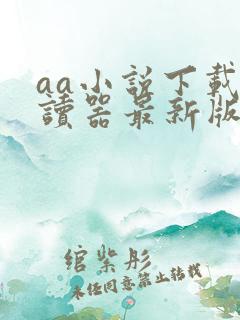 aa小说下载
讀器最新版
绾紫彤
未经同意禁止转载